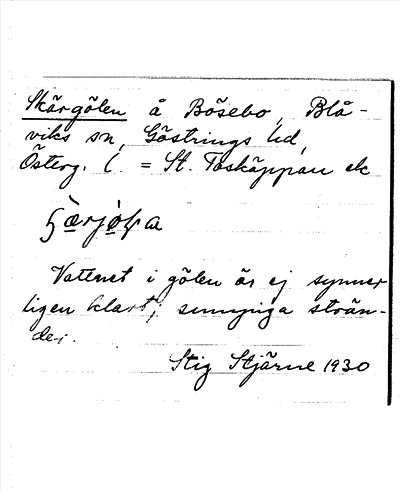 Skärgölen å Bösebo, Blå-
viks sn, Göstrings hd,
Österg. l. = St. ek
Vattnet i gölen är ej synner
ligen klart; sumpiga strän-
der.
Stig Stjärne 1930